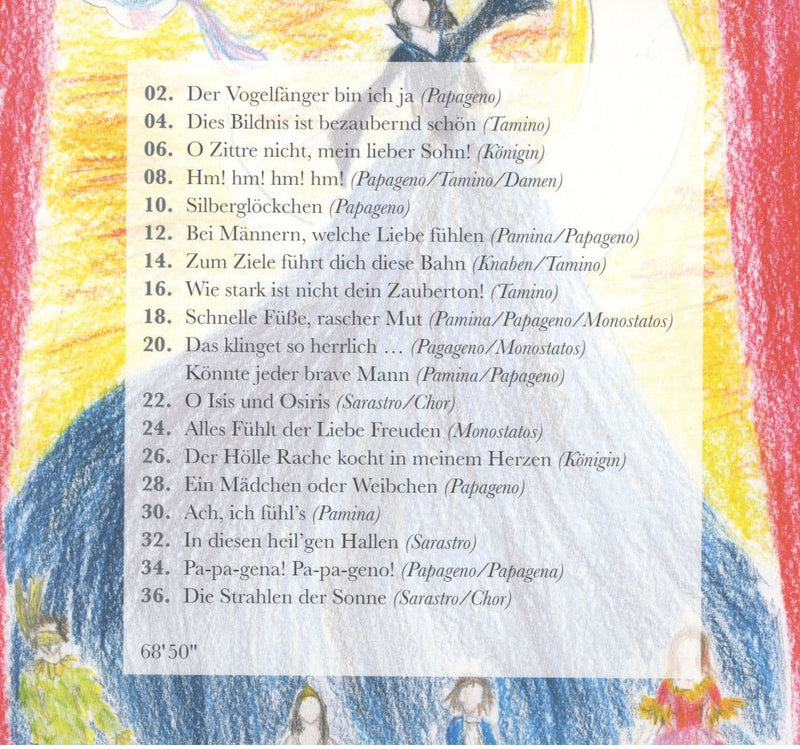 02. Der Vogelfänger bin ich ja (Papageno)
04. Dies Bildnis ist bezaubernd schön (Tamino)
06. O Zittre nicht, mein lieber Sohn! (Königin)
08. Hm! hm! hm! hm! (Papageno/Tamino/Damen)
10. Silberglöckchen (Papageno)
12. Bei Männern, welche Liebe fühlen (Pamina/Papageno)
14. Zum Ziele führt dich diese Bahn (Knaben/Tamino)
16. Wie stark ist nicht dein Zauberton! (Tamino)
18. Schnelle Füße, rascher Mut (Pamina/Papageno/Monostatos)
20. Das klinget so herrlich … (Pagageno/Monostatos)
Könnte jeder brave Mann (Pamina/Papageno)
22. O Isis und Osiris (Sarastro/Chor)
24. Alles Fühlt der Liebe Freuden (Monostatos)
26. Der Hölle Rache kocht in meinem Herzen (Königin)
28. Ein Mädchen oder Weibchen (Papageno)
30. Ach, ich fühl's (Pamina)
32. In diesen heil'gen Hallen (Sarastro)
34. Pa-pa-gena! Pa-pa-geno! (Papageno/Papagena)
36. Die Strahlen der Sonne (Sarastro/Chor)
68'50"